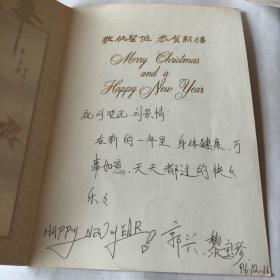 敬祝聖誕 恭賀新禧
Merry Christmas
and a
Happy New Year
祝刘晓元、刘景倩:
在新的一年里,身体健康,万
事如意,天天都过的快快
乐乐
HAPPY NEW YEAR
郭兴 黎宝珍
96.12.26